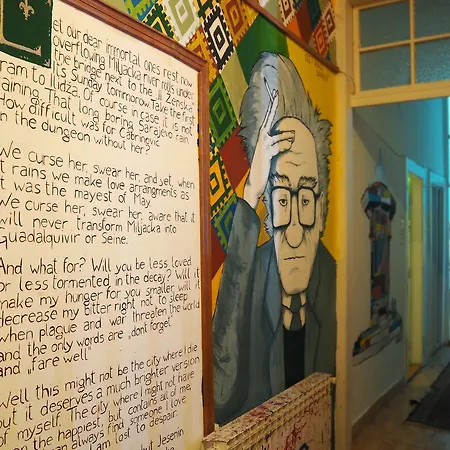 et our dear immortal ones rest now
overflowing Miljacka river rolls under
the bridge next to the II „Ženska“
It's Sunday tommorow. Take the first
tram to Ilidža. Of course in case it is not
raining. That long boring Sarajevo rain.
How difficult was for Čabrinović
in the dungeon without her?
We curse her, swear her, and yet, when
it rains we make love arrangments as
it was the mayest of May.
We curse her, swear her, aware that it
will never transform Miljacka into
Guadalquivir or Seine.
And what for? Will you be less loved
or less tormented in the decay? Will it
make my hunger for you smaller, will it
decrease my bitter right not to sleep
when plague and war threaten the world
and the only words are „dont forget“
and „fare well“
Well this might not be the city where I die
but it deserves a much brighter version
of myself. The city where I might not have
been the happiest, but contains all of me,
can always find someone I love
I am lost to despair.
but Jesenin